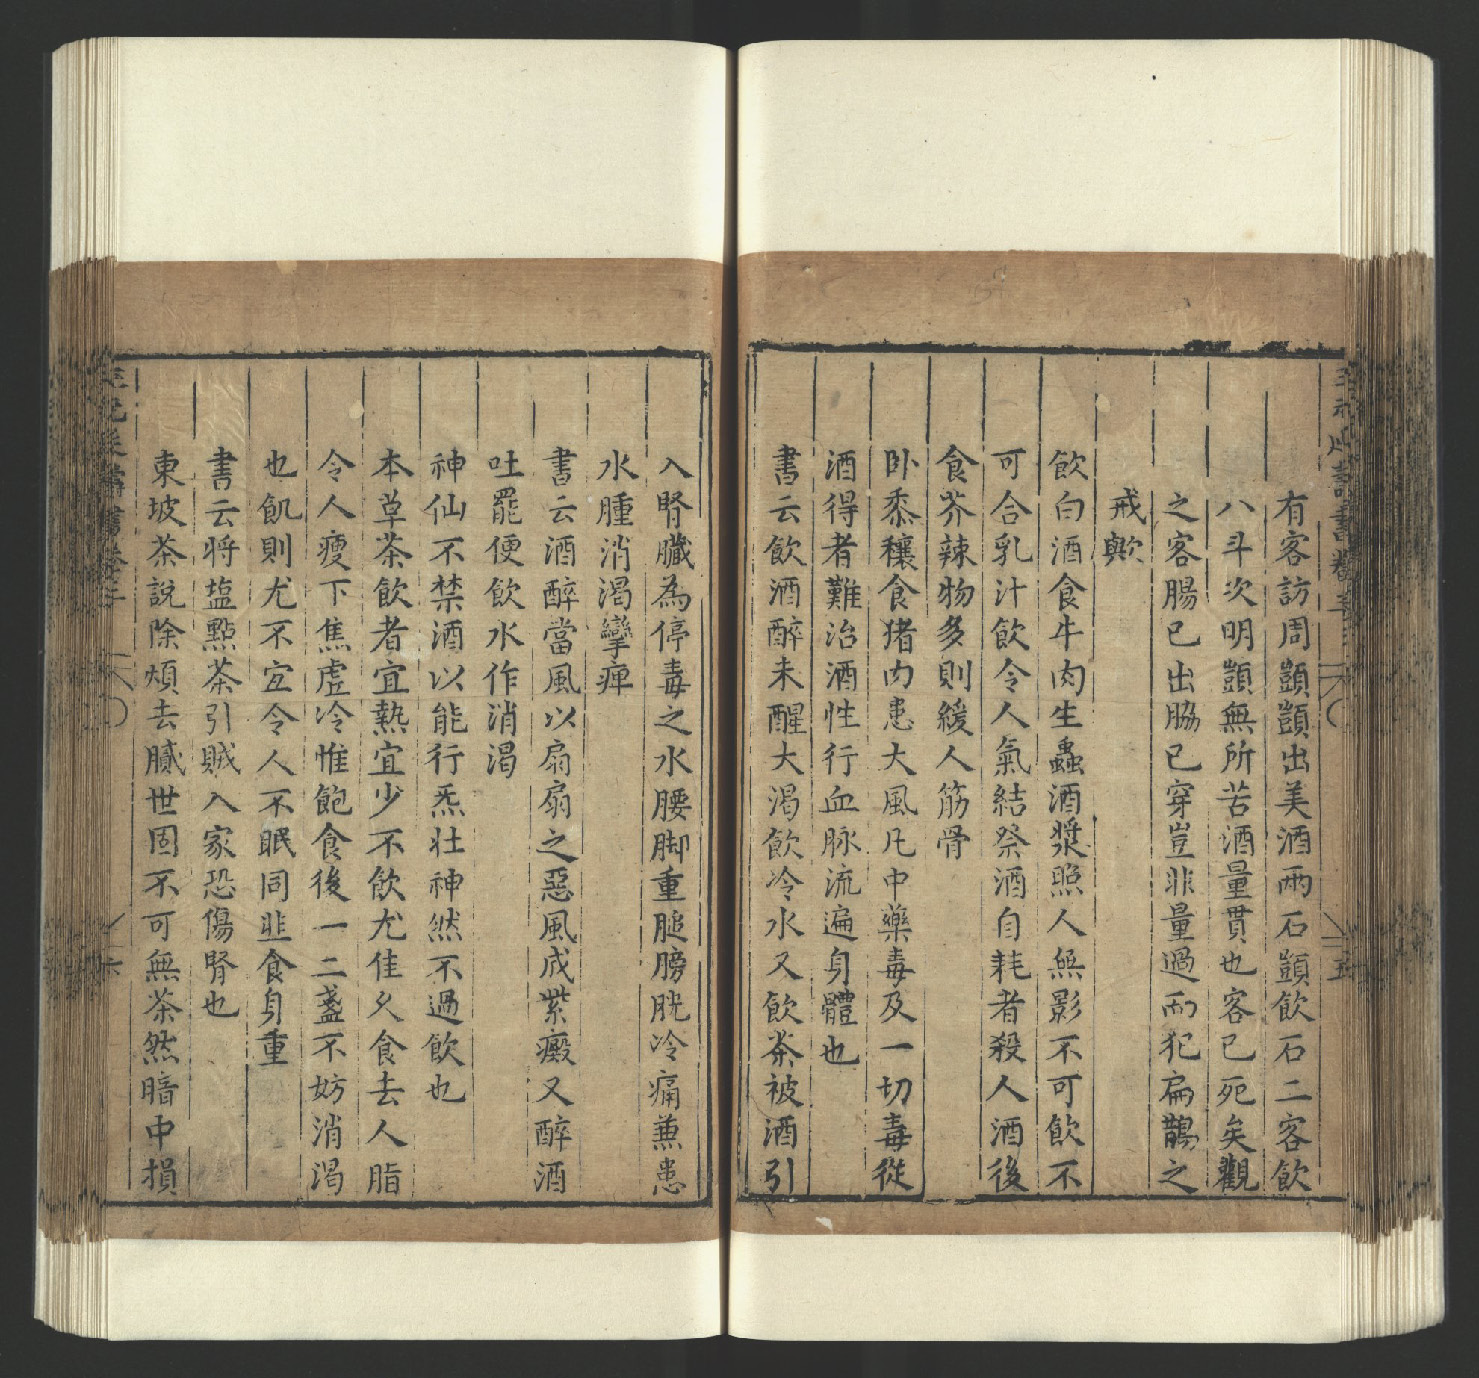 有客訪周顗顗出美酒兩石顗飲石二客飲
八斗次明顗無所苦酒量貫也客已死矣觀
之客腸已出脇已穿豈非量過而犯扁鵲之
戒歟
飲白酒食牛肉生蟲酒漿照人無影不可飲不
可合乳汁飲令人氣結祭酒自耗者殺人酒後
食芥辣物多則緩人筋骨
卧黍穰食猪肉患大風凡中藥毒及一切毒從
酒得者難治酒性行血脉流遍身體也
書云飲酒醉未醒大渴飲冷水又飲茶被酒引
入腎臟為停毒之水腰脚重膇膀胱冷痛兼患
水腫消渴攣痺
書云酒醉當風以扇扇之惡風成紫癜又醉酒
吐罷便飲水作消渴
神仙不禁酒以能行炁壯神然不過飲也
本草茶飲者宜熱宜少不飲尤佳久食去人脂
令人瘦下焦虛冷惟飽食後一二盞不妨消渴
也飢則尤不宜令人不眠同韭食身重
書云将塩點茶引賊入家恐傷腎也
東坡茶說除煩去膩世固不可無茶然暗中損